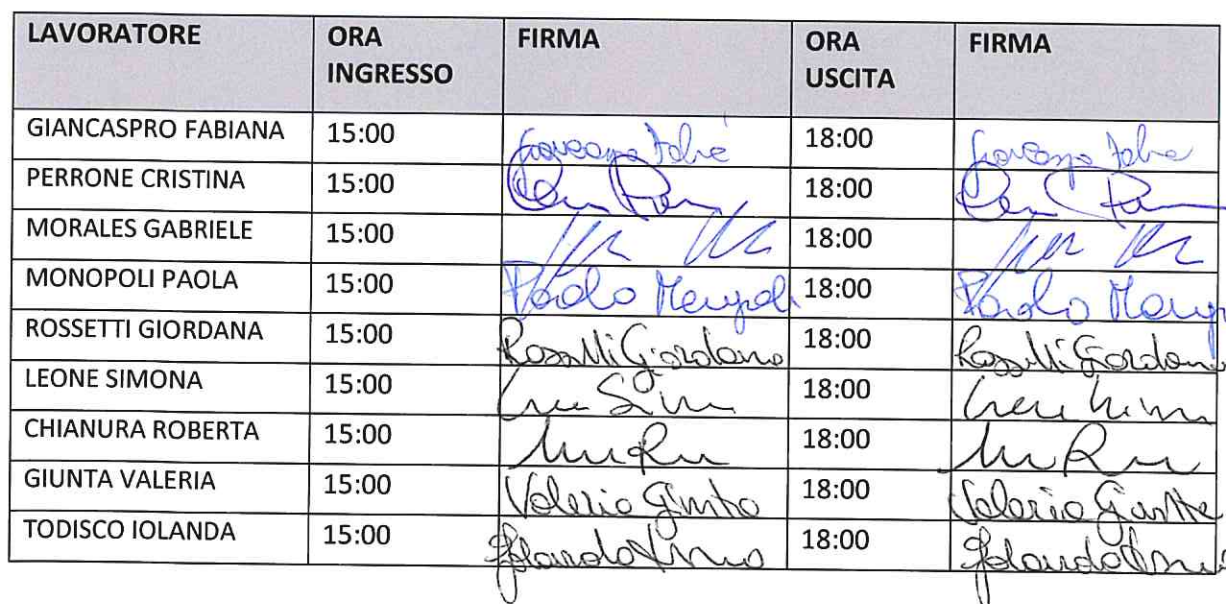 LAVORATORE ORA INGRESSO FIRMA ORA USCITA FIRMA
GIANCASPRO FABIANA 15:00 18:00
PERRONE CRISTINA 15:00 18:00
MORALES GABRIELE 15:00 18:00
MONOPOLI PAOLA 15:00 Paola 18:00 Paola
ROSSETTI GIORDANA 15:00 Rossetti Giordana 18:00 Rossetti Giordana
LEONE SIMONA 15:00 18:00
CHIANURA ROBERTA 15:00 18:00
GIUNTA VALERIA 15:00 Valeria Giunta 18:00 Valeria Giunta
TODISCO IOLANDA 15:00 Iolanda 18:00 Iolanda